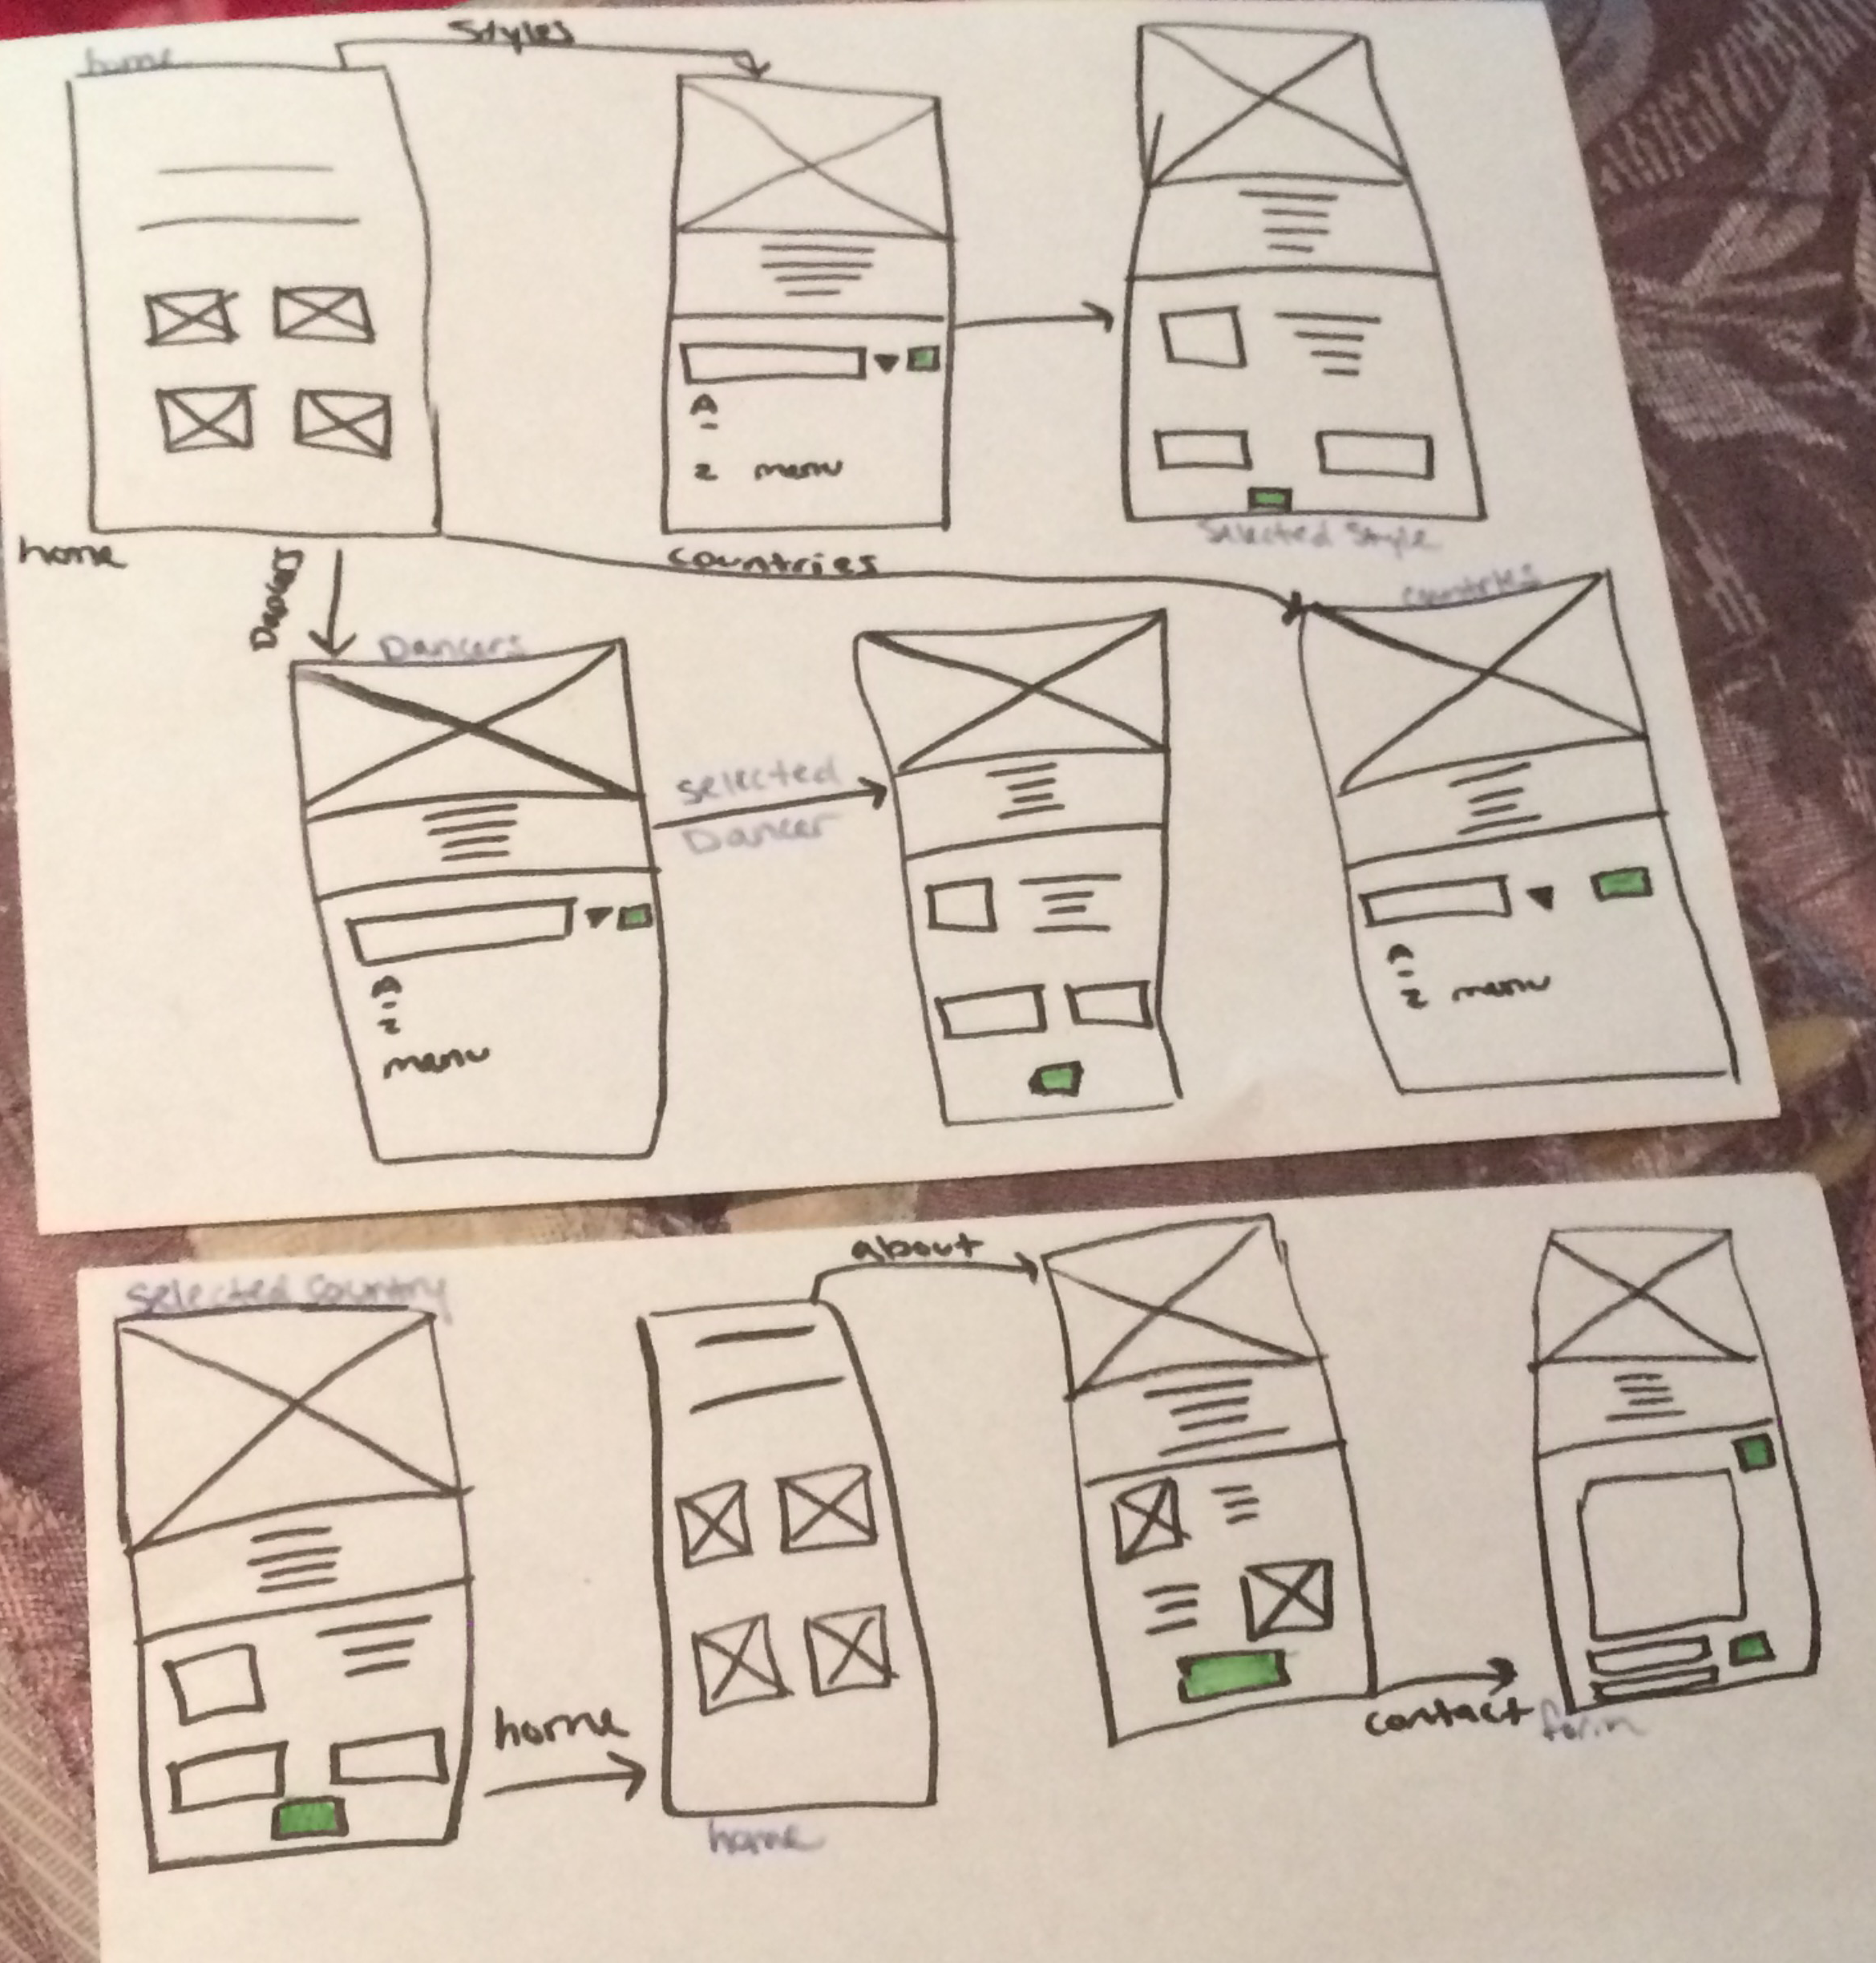 home
Styles
A
-
Z menu
home
Selected Style
Dancers
countries
Dancers
countries
selected
Dancer
A
-
Z
menu
A
-
Z menu
Selected Country
about
home
home
contact
form